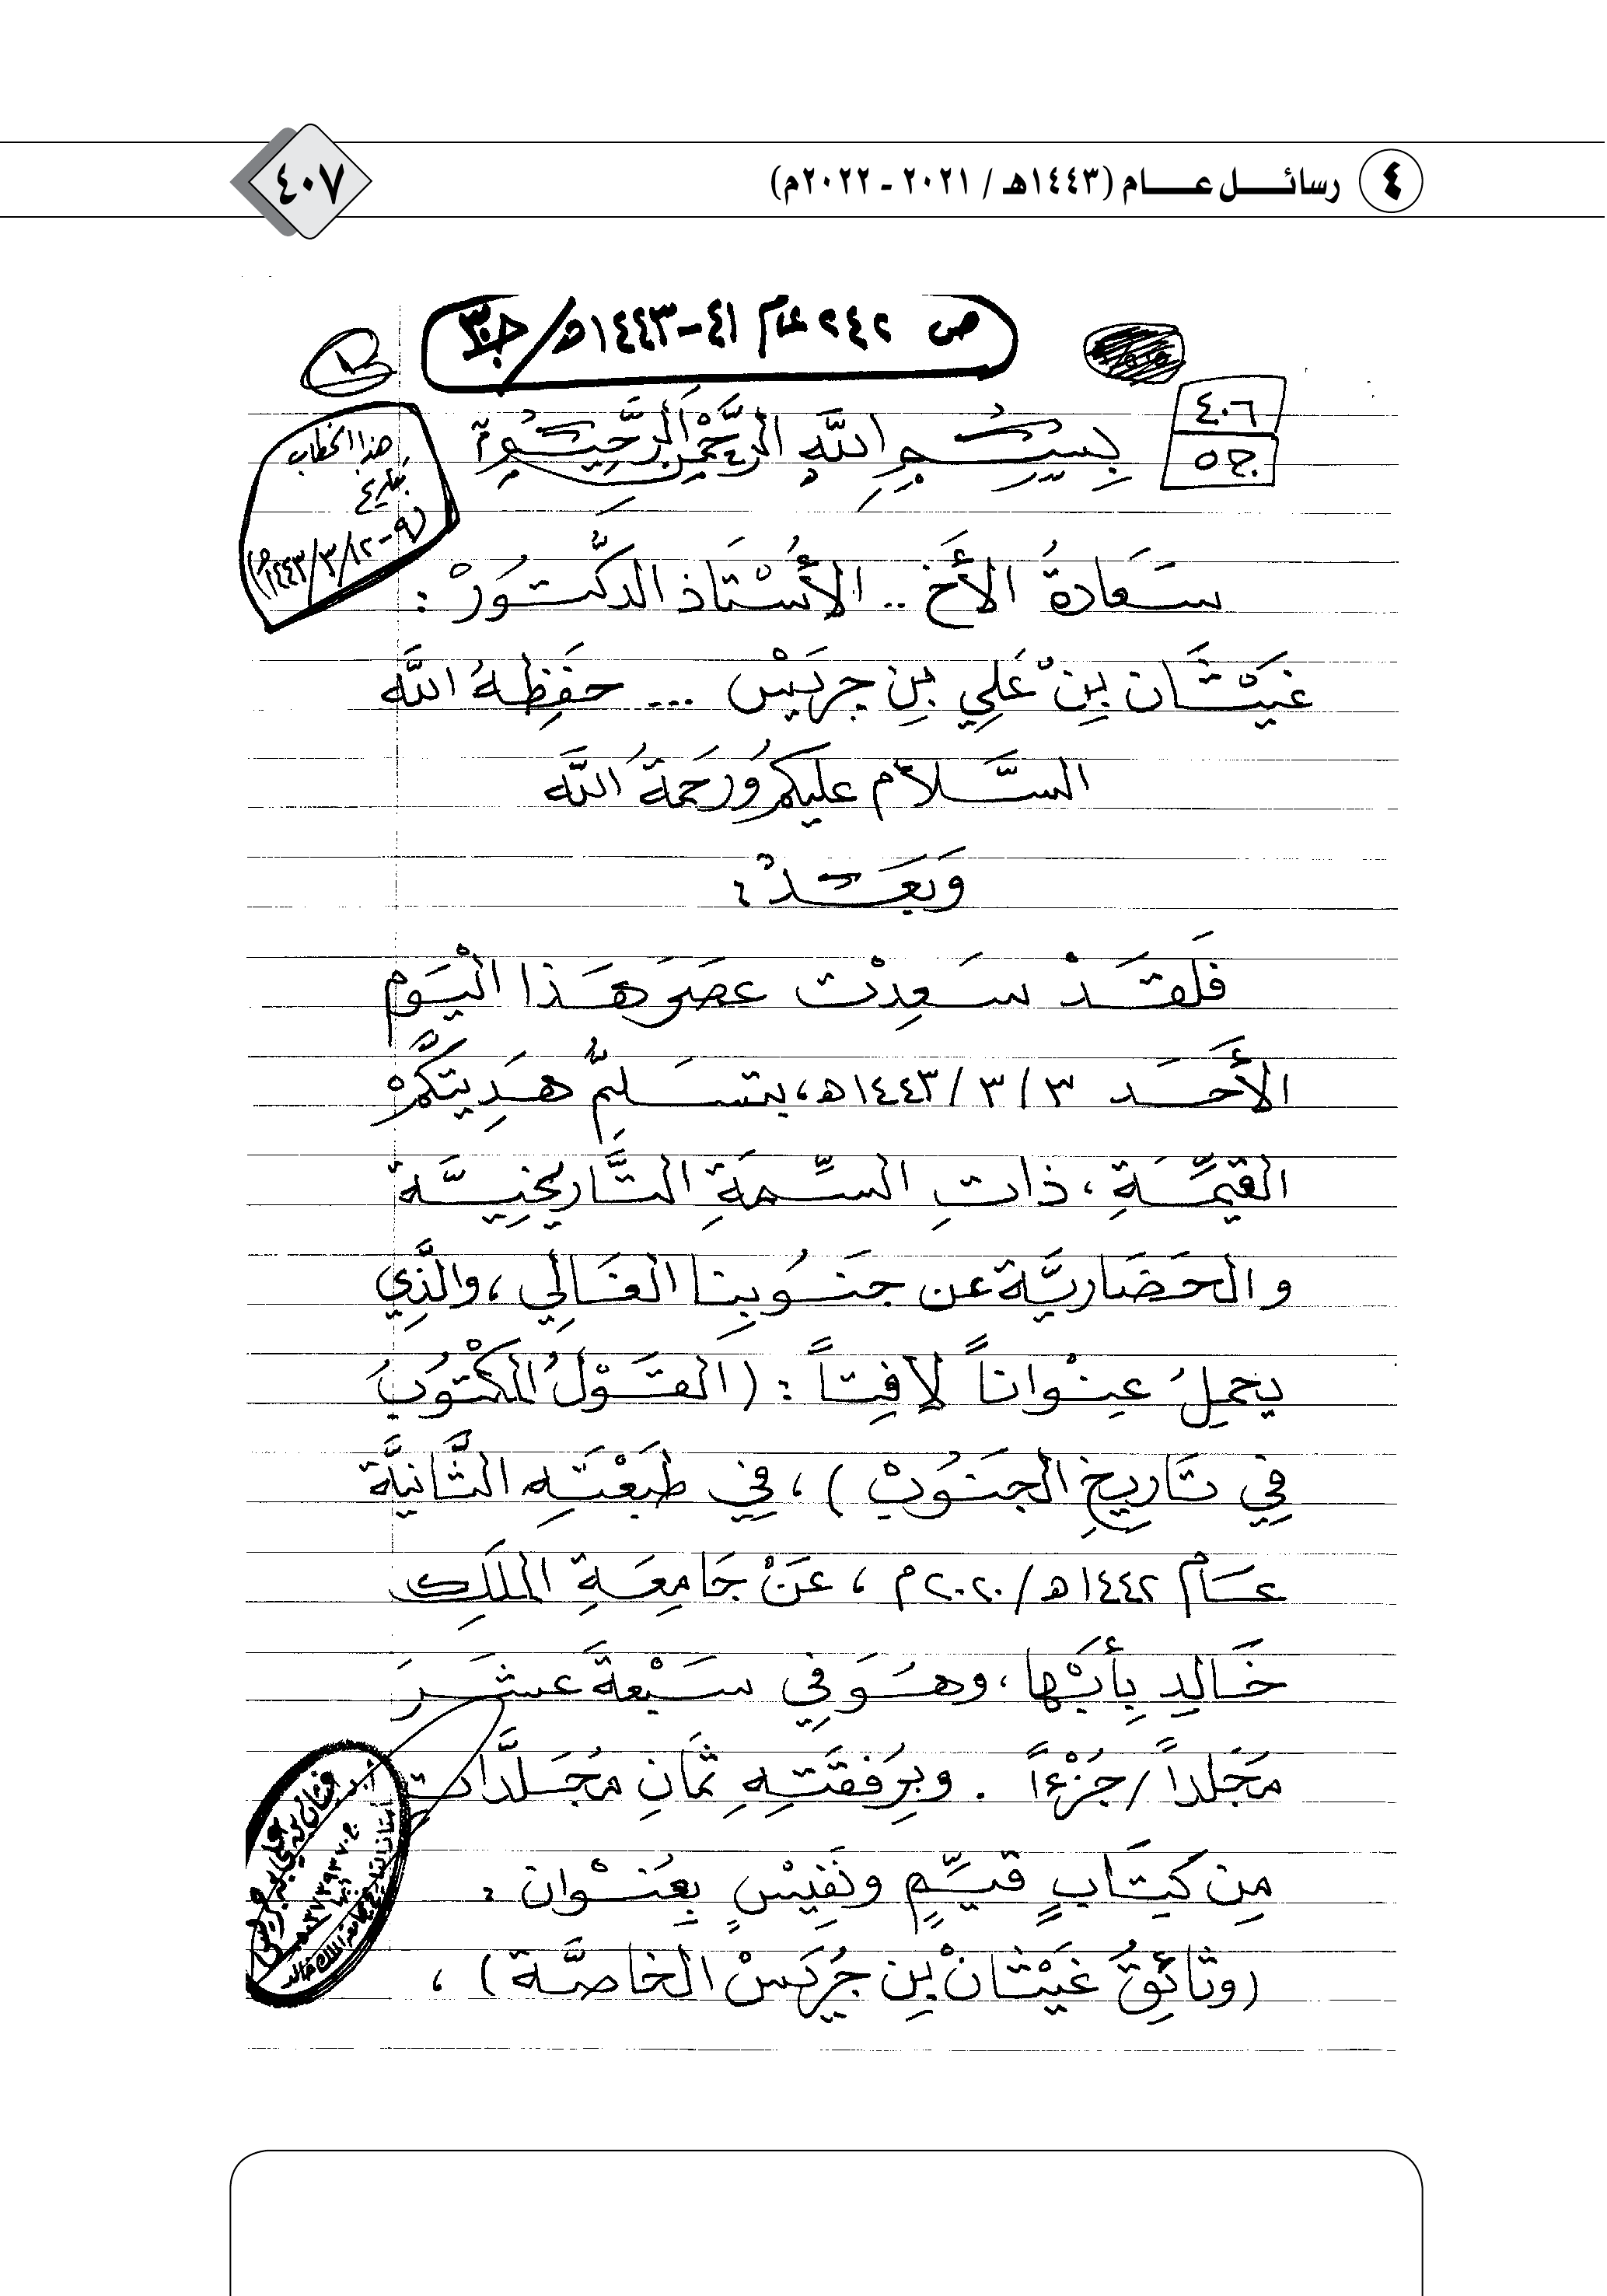 ٤ رسائل عام (١٤٤٣هـ / ٢٠٢١ - ٢٠٢٢م)
٤٠٧
ص ٢٤٢ عام ٤١-١٤٤٣هـ/ج٣٠
٤٠٦
ج٥
هذا الخطاب
بسم الله الرحمن الرحيم
سَعَادةُ الأَخ .. الأُسْتَاذ الدكتُورْ :
غَيْثَان بِنْ عَلِي بِن جريَسْ ... حفَظِهُ اللَّه
السَّلام عليكم وَرَحَمةُ اللَّه
وَبعَدْ :
فَلَقَدْ سَعِدْت عصَر هَذا الْيَوم
الأَحَد ٣ / ٣ / ١٤٤٣هـ، بتسَلمُّ هَدِيتكُمْ
القيمِّةِ ، ذاتِ السِّمَةِ التَّاريخِيَّة
و الحَضَاريَّة عن جنَوُبِنا الغَالِي ، والَّذِي
يحمِلُ عِنْواناً لافِتاً : (القَوْلُ المكْتوُبَ
فِي تَاريخِ الجنَوُبْ ) ، فِي طَبَعْتَهِ الثَّانيَّة
عَامْ ١٤٤٢هـ/٢٠٢٠م ، عَنْ جَامِعَةِ المَلَكِ
خَالِد بِأَبْها ، وهُوَ فِي سَبْعةَ عشَرَ
مَجَلداً /جُزْءاً . وبِرَفقَتهِ ثَمَانِ مُجَلَّدَات
مِن كِتَابٍ قيِّمٍ ونَفِيْسٍ بِعُنْوان :
(وثَائِقُ غَيْثَانْ بِنْ جُريَسْ الخَاصَّة ) ،